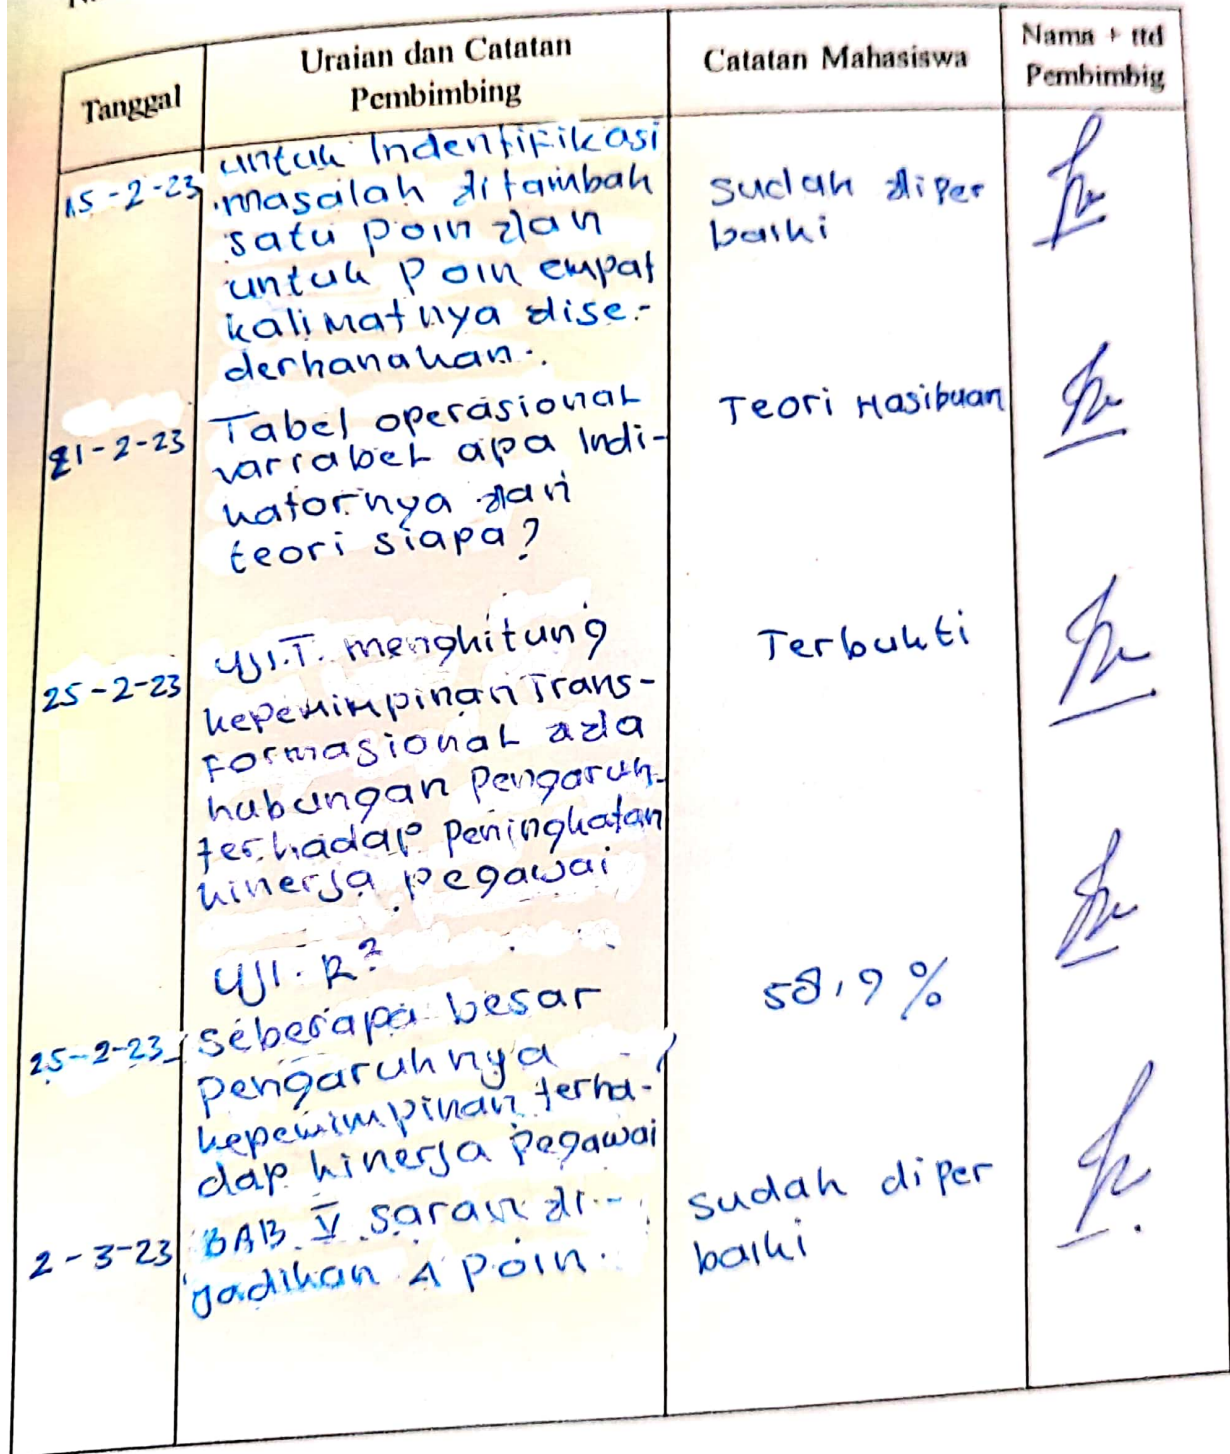 Tanggal
Uraian dan Catatan
Pembimbing
Catatan Mahasiswa
Nama + ttd
Pembimbig
15-2-23
untuk Indentifikasi
masalah ditambah
satu poin dan
untuk poin empat
kalimatnya dise-
derhanakan.
sudah diper
baiki
21-2-23
Tabel operasional
variabel apa Indi-
katornya dari
teori siapa?
Teori Hasibuan
25-2-23
Uji.T. menghitung
kepemimpinan Trans-
formasional ada
hubungan pengaruh
terhadap peningkatan
kinerja pegawai
Terbukti
25-2-23
Uji. R²
seberapa besar
pengaruhnya
kepemimpinan terha-
dap kinerja pegawai
58,9 %
2-3-23
BAB V saran di-
jadikan 4 poin.
sudah diper
baiki